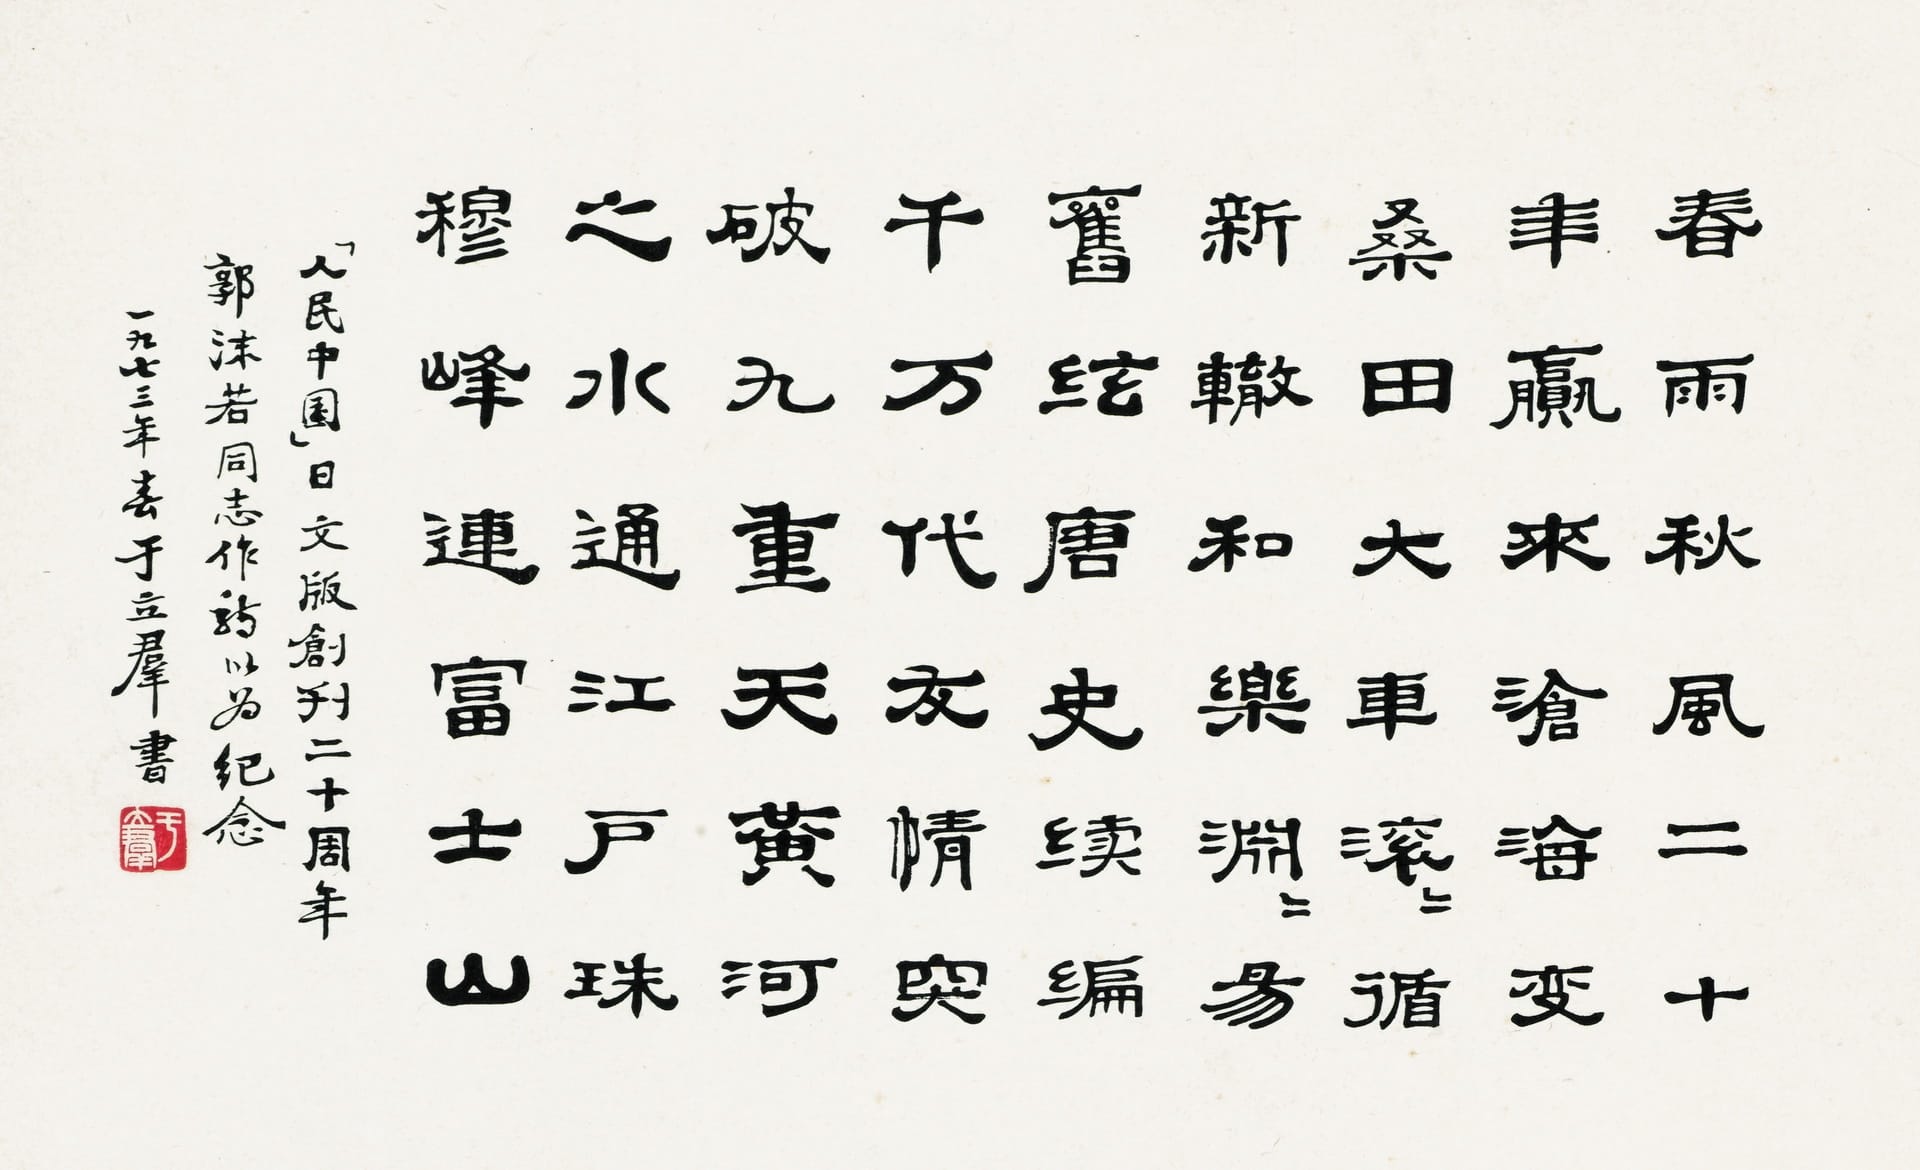 春雨秋風二十
年贏來滄海变
桑田大車滚〻循
新轍和樂淵〻易
舊絃唐史续编
千万代友情突
破九重天黄河
之水通江戸珠
穆峰連富士山
「人民中国」日文版創刊二十周年
郭沫若同志作詩以为紀念
一九七三年春于立羣書
于立羣